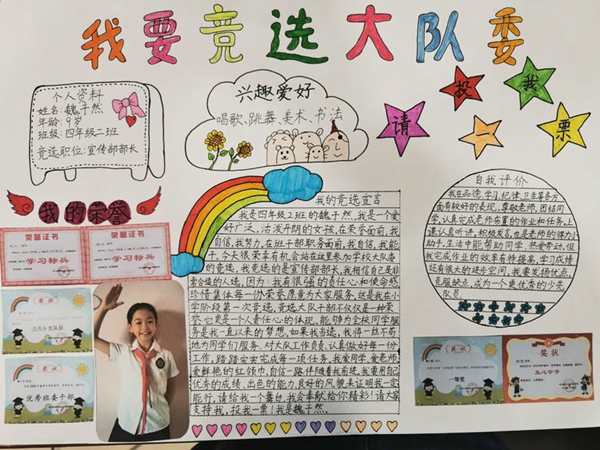 我要竞选大队委
个人资料
姓名:魏予然
年龄:9岁
班级:四年级二班
竞选职位:宣传部部长
兴趣爱好
唱歌、跳舞、美术、书法
请投我一票
我的荣誉
荣誉证书
学习标兵
荣誉证书
学习标兵
优秀班委干部
一等奖
奖状
我的竞选宣言
我是四年级2班的魏予然,我是一个爱
好广泛,活泼开朗的女孩,在荣誉面前,我
自信,我努力,在班干部职务面前,我自信,我能
干。今天很荣幸有机会站在这里参加学校大队委
的竞选,我竞选的是宣传部部长,我相信自己是非
常合适的人选,因为:我有很强的责任心和使命感
珍惜集体每一份荣誉愿意为大家服务,这是我在小
学阶段第一次竞选,竞选大队干部不仅仅是一种荣
誉,它是一个人责任心的体现,能够为大家同学服
务是我一直以来的梦想,如果我当选,我将一丝不苟
地为同学们服务,对大队工作负责,认真做好每一份
工作,踏踏实实完成每一项任务,我爱同学,爱老师
爱鲜艳的红领巾,自信一路伴随着我前进,我要用自己
优秀的成绩,出色的能力,良好的风貌来证明我一定
能行,请给我一个舞台,我会奉献给你们精彩!请大家
支持我,投我一票!我是魏予然。
自我评价
我在品德、学习、纪律、卫生等各方
面有较好的表现,尊敬老师,团结同
学,认真完成老师布置的作业和任务,上
课认真听讲,积极发言,也是老师的得力小
助手。生活中能帮助同学,热爱劳动,但
我完成作业的效率有待提高,学习成绩
还有很大的进步空间,我要发扬优点,
克服缺点,成为一个更优秀的少先
队员。